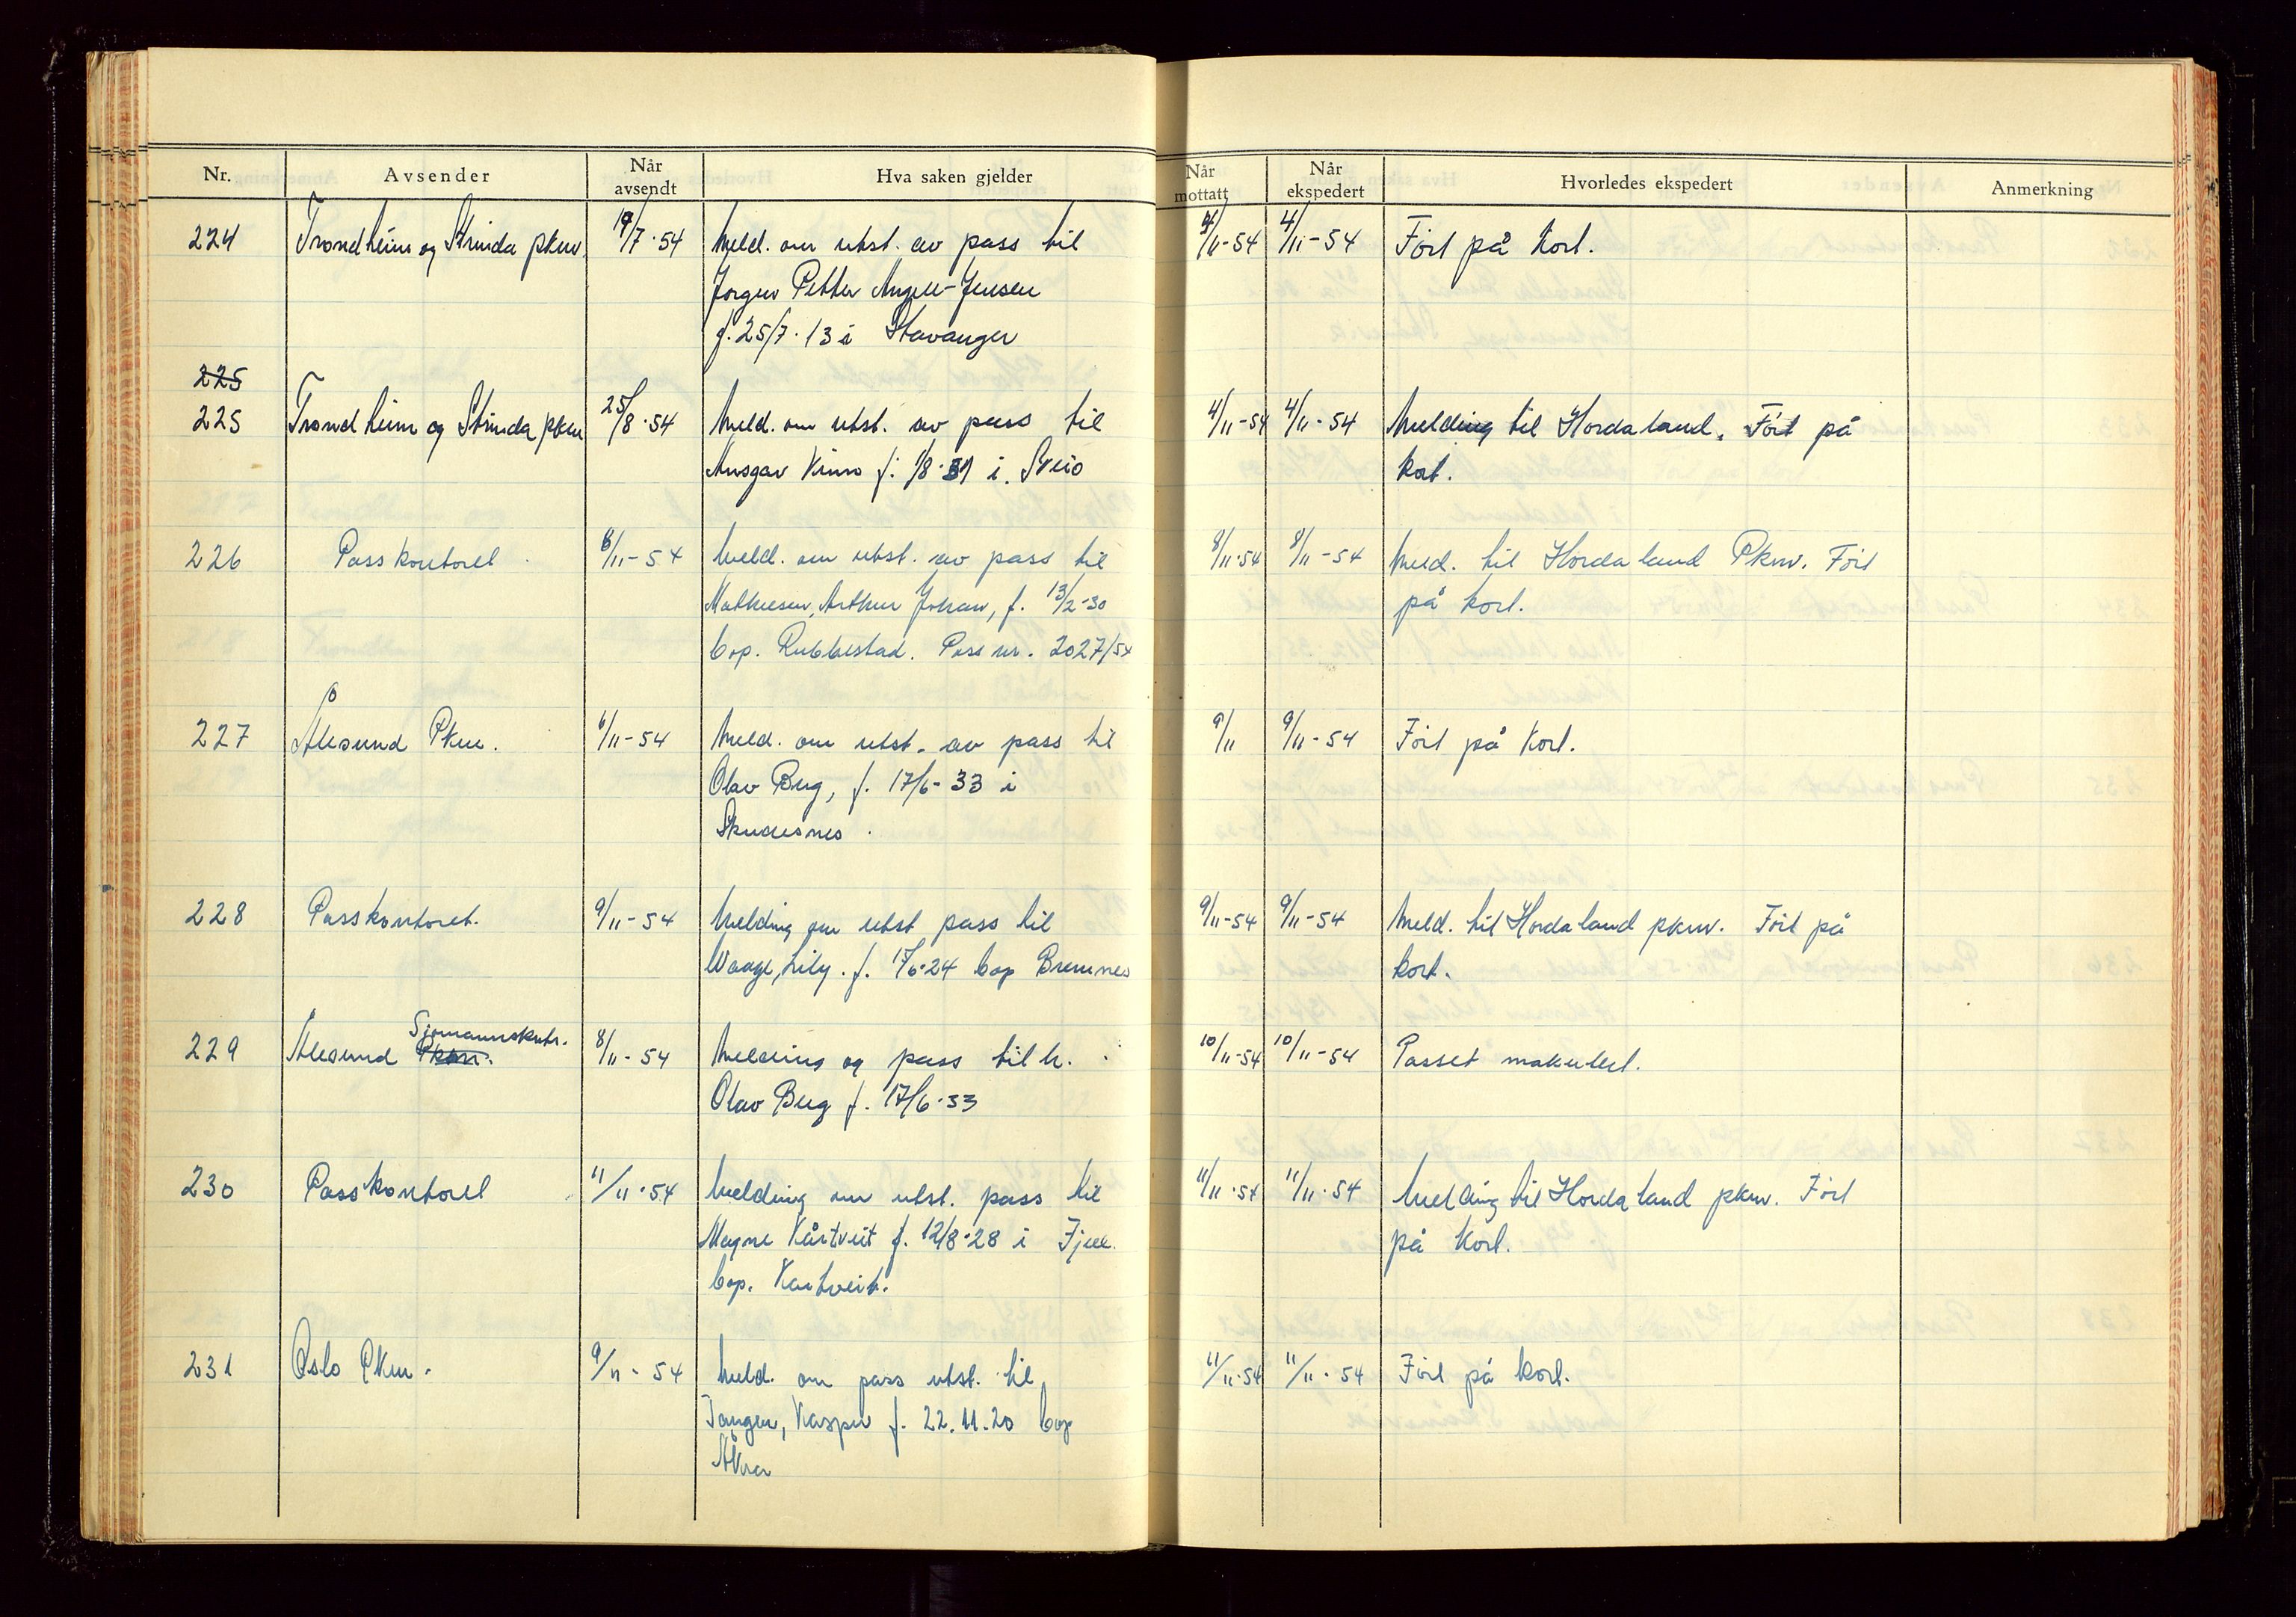 Nr. Avsender Når avsendt Hva saken gjelder Når mottatt Når ekspedert Hvorledes ekspedert Anmerkning
224 Trondheim og Strinda pkm. 19/7-54 Meld. om utst. av pass til 4/11-54 4/11-54 Ført på kort.
Jørgen Petter Angell-Jensen
f. 25/7-13 i Stavanger
225
225 Trondheim og Strinda pkm 25/8-54 Meld. om utst. av pass til 4/11-54 4/11-54 Melding til Hordaland. Ført på
Ansgar f. 1/8-31 i Sveio kort.
226 Passkontoret 6/11-54 Meld. om utst. av pass til 8/11-54 8/11-54 Meld. til Hordaland Pkm. Ført
Mathiesen, Arthur Johan, f. 13/2-30 på kort.
bop. Rubbestad. Pass nr. 2027/54
227 Ålesund Pkm. 6/11-54 Meld. om utst. av pass til 9/11 9/11-54 Ført på kort.
Olav Berg, f. 17/6-33 i
Skudesnes.
228 Passkontoret. 9/11-54 Melding om utst pass til 9/11-54 9/11-54 Meld. til Hordaland pkm. Ført på
Waage, Lily. f. 17/6-24 bop Bremnes kort.
229 Ålesund Pkm. Sjømannsktr. 8/11-54 Melding og pass tilh. 10/11-54 10/11-54 Passet makulert.
Olav Berg f. 17/6-33
230 Passkontoret 11/11-54 Melding om utst. pass til 11/11-54 11/11-54 Melding til Hordaland pkm. Ført
Magne Kårtveit f. 12/8-28 i Fjell. på kort.
bop. Kartveit.
231 Oslo Pkm. 9/11-54 Meld. om pass utst. til 11/11-54 11/11-54 Ført på kort.
Tangen, Kasper f. 22.11.20 bop
Åkra